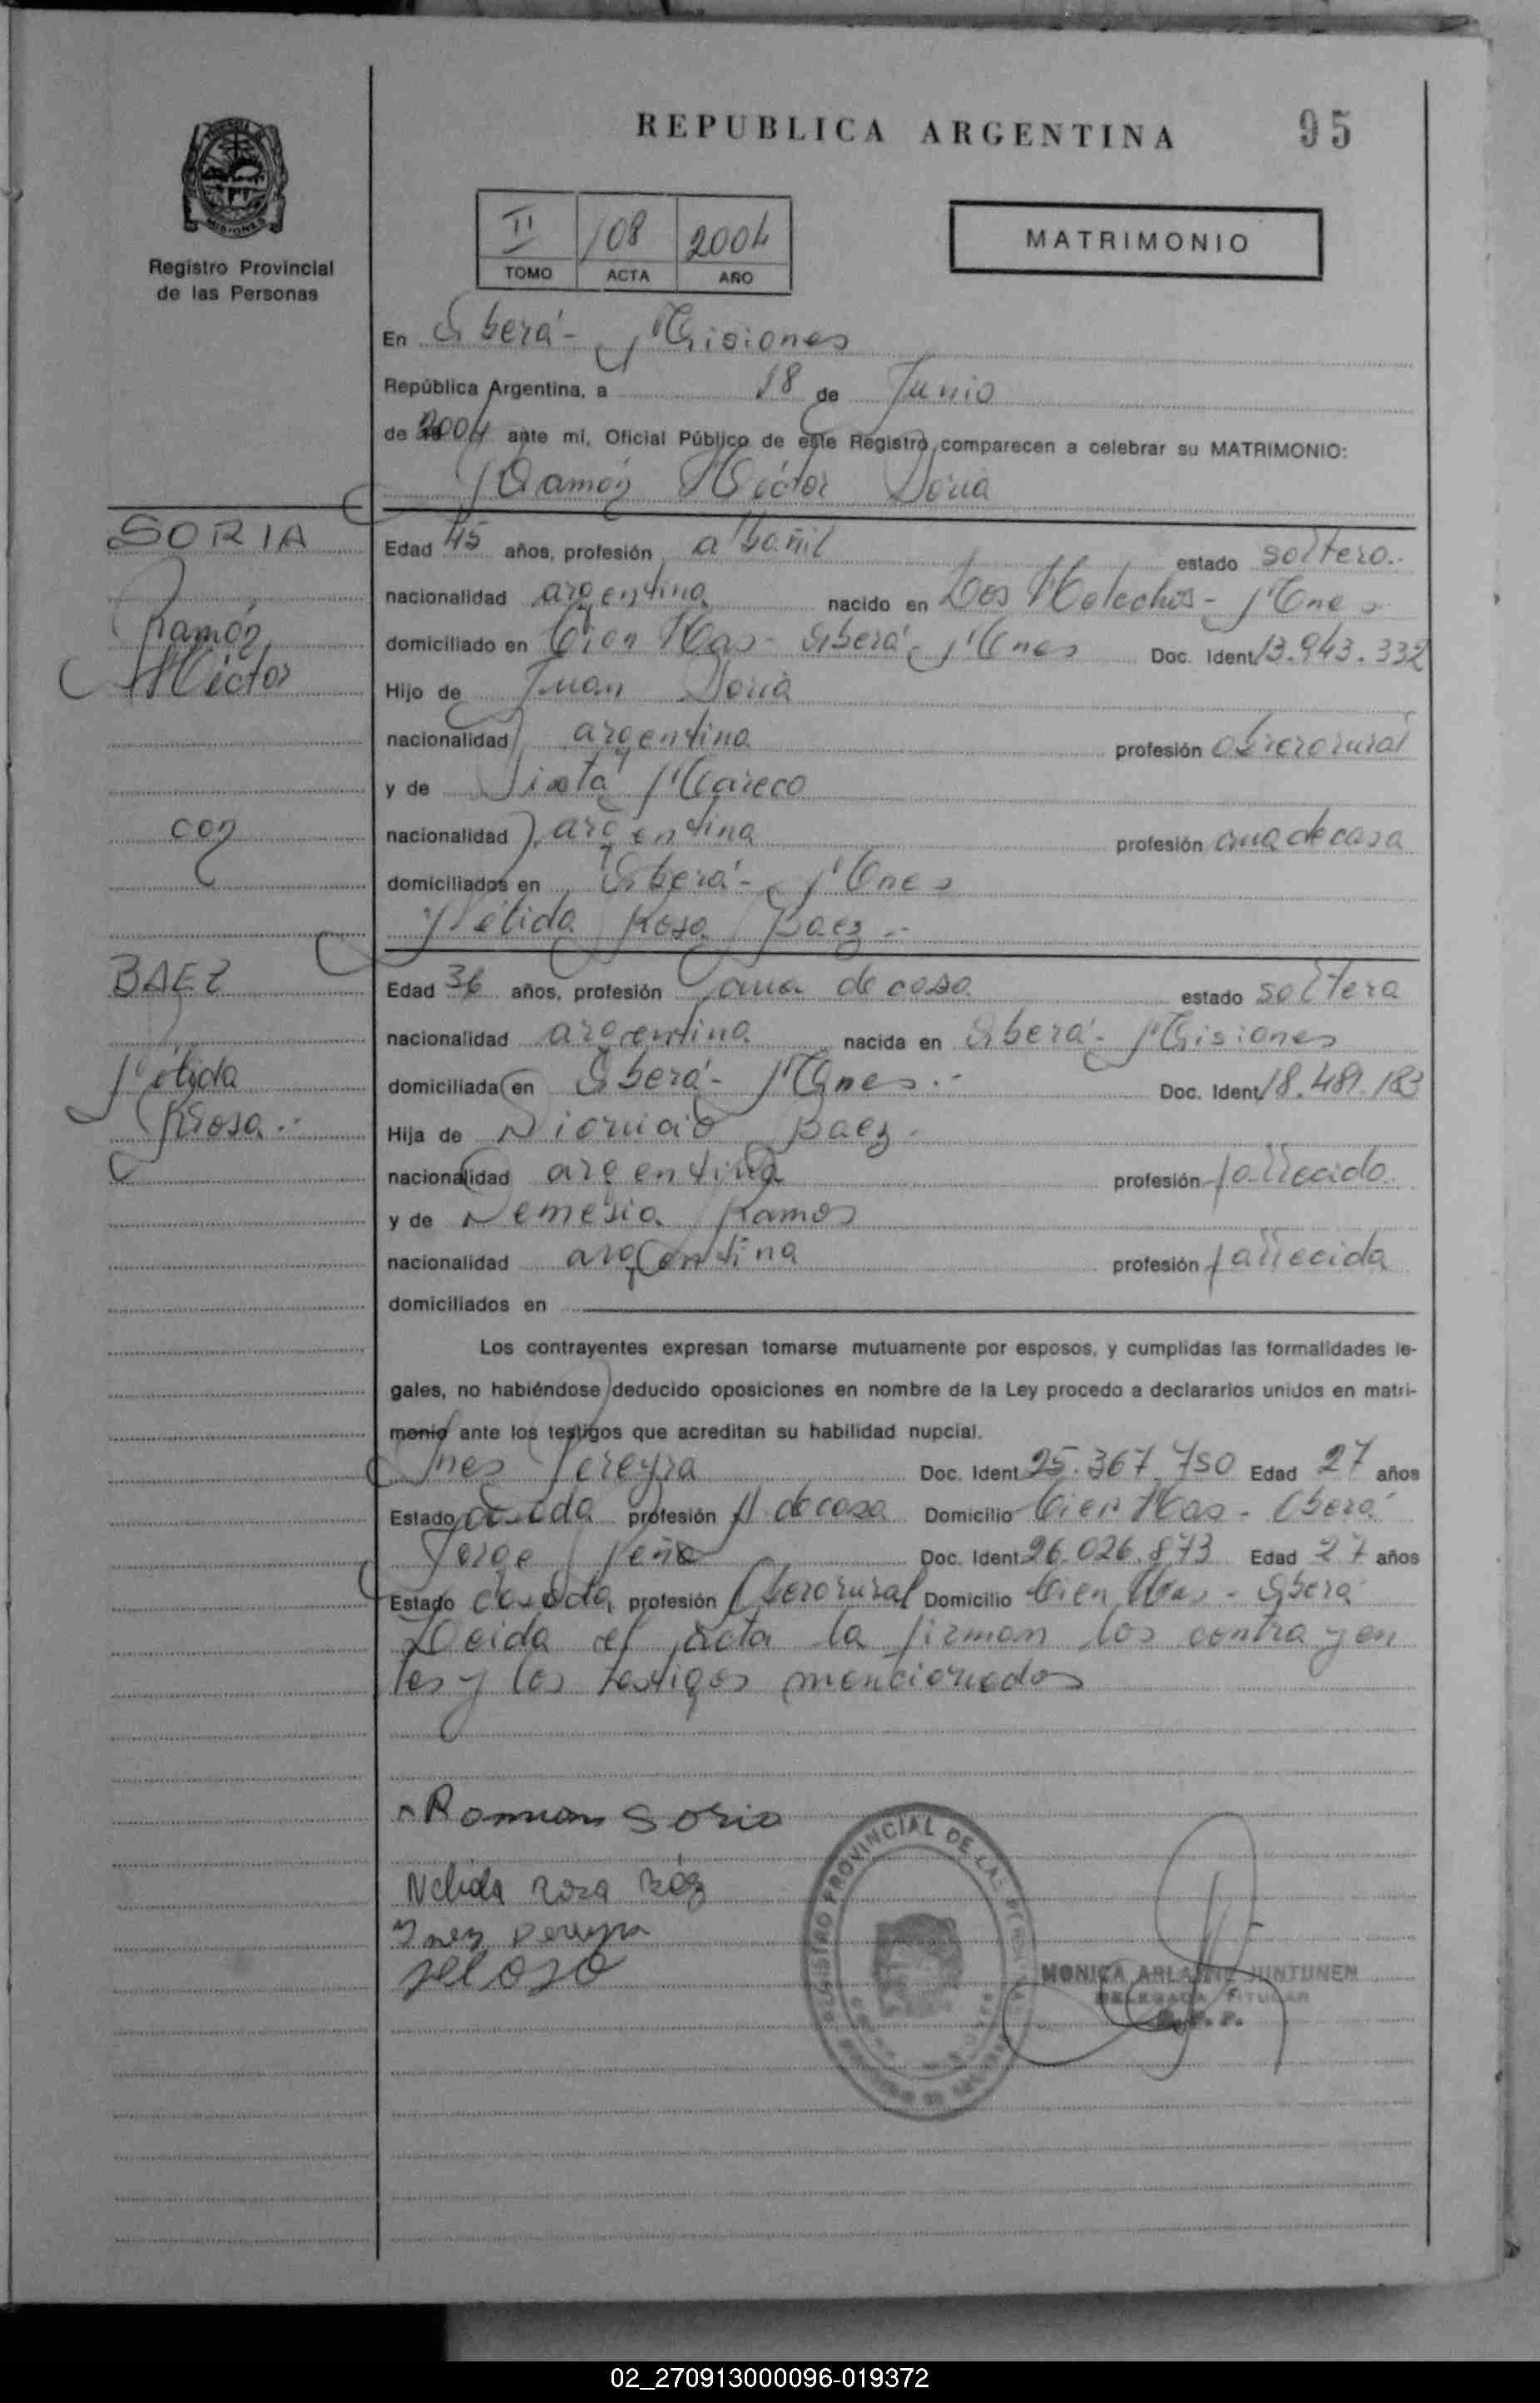 REPUBLICA ARGENTINA
95
Registro Provincial
de las Personas
II 108 2004
TOMO ACTA AÑO
MATRIMONIO
En Oberá - Misiones
República Argentina, a 18 de Junio
de 2004 ante mí, Oficial Público de este Registro comparecen a celebrar su MATRIMONIO:
Ramón Héctor Soria
SORIA
Ramón
Héctor
con
BAEZ
Nélida
Rosa.-
Edad 45 años, profesión albañil estado soltero.-
nacionalidad argentina nacido en Los Helechos - Mnes
domiciliado en Cien Has - Oberá - Mnes Doc. Ident. 13.943.332
Hijo de Juan Soria
nacionalidad argentina profesión obrero rural
y de Sixta Mareco
nacionalidad argentina profesión ama de casa
domiciliados en Oberá - Mnes
Nélida Rosa Baez.-
Edad 36 años, profesión ama de casa estado soltera
nacionalidad argentina nacida en Oberá - Misiones
domiciliada en Oberá - Mnes.- Doc. Ident. 18.481.183
Hija de Baez.-
nacionalidad argentina profesión fallecido
y de Nemesia Ramos
nacionalidad argentina profesión fallecida
domiciliados en
Los contrayentes expresan tomarse mutuamente por esposos, y cumplidas las formalidades le-
gales, no habiéndose deducido oposiciones en nombre de la Ley procedo a declararlos unidos en matri-
monio ante los testigos que acreditan su habilidad nupcial.
Ines Pereyra Doc. Ident. 25.367.750 Edad 27 años
Estado profesión A de casa Domicilio Cien Has - Oberá
Jorge Peña Doc. Ident. 26.026.873 Edad 27 años
Estado profesión Obrero rural Domicilio Cien Has - Oberá
Leida el acta la firman los contrayen
tes y los testigos mencionados
Ramon Soria
Nelida Rosa Báez
Inez Pereyra
REGISTRO PROVINCIAL DE LAS PERSONAS
MONICA ARLAINE JUNTUNEN
DELEGADA TITULAR
R. P. P.
02_270913000096-019372